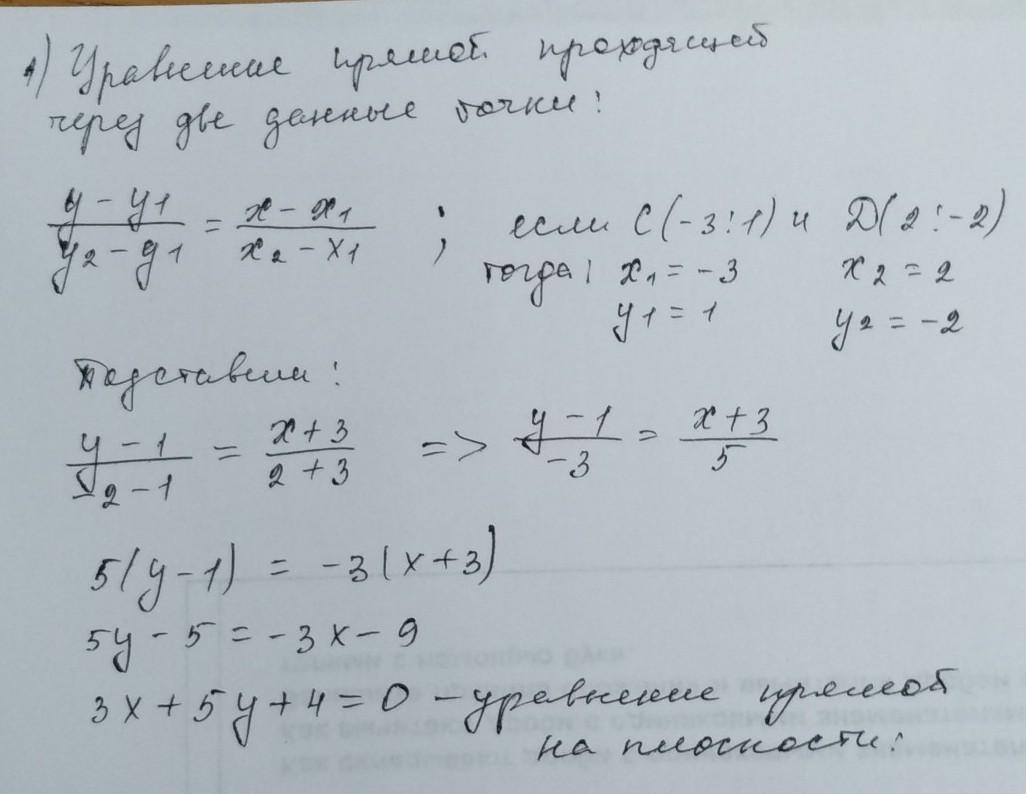 1) Уравнение прямой проходящей
через две данные точки:
y - y1 / y2 - y1 = x - x1 / x2 - x1 ; если C(-3;1) и D(2;-2)
тогда: x1 = -3 x2 = 2
y1 = 1 y2 = -2
Подставим:
y - 1 / -2 - 1 = x + 3 / 2 + 3 => y - 1 / -3 = x + 3 / 5
5(y - 1) = -3(x + 3)
5y - 5 = -3x - 9
3x + 5y + 4 = 0 - уравнение прямой
на плоскости.